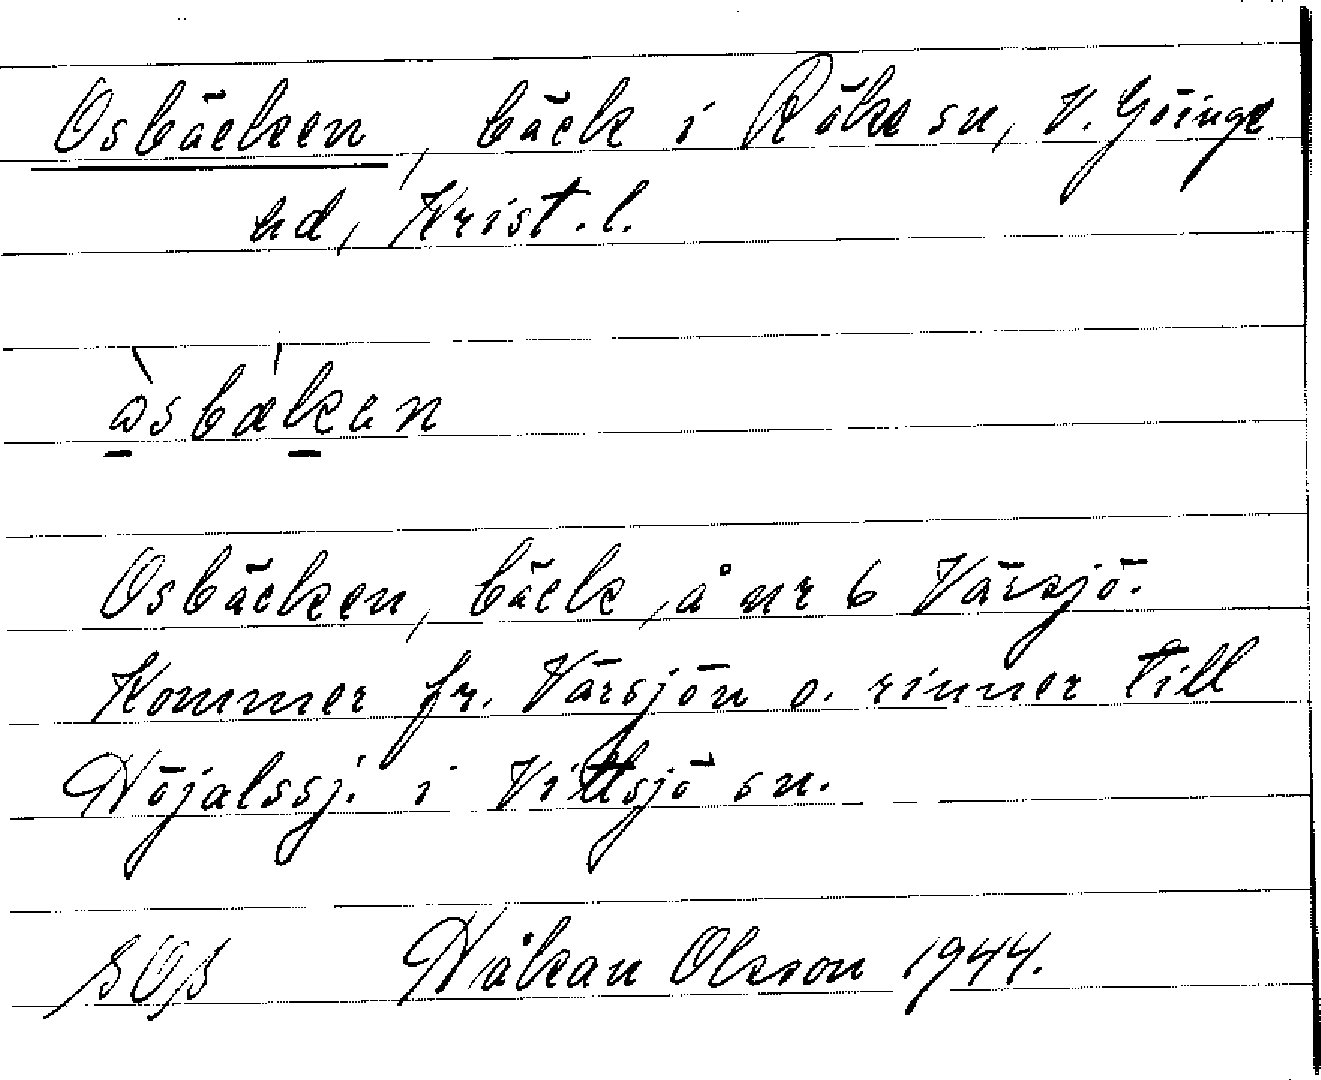 Osbäcken, bäck i Röke sn, V. Göinge
hd, Krist. l.
Osbäcken, bäck, å nr 6 Värsjö.
Kommer fr. Värsjön o. rinner till
Höjalssj. i Vittsjö sn.
Håkan Olsson 1944.